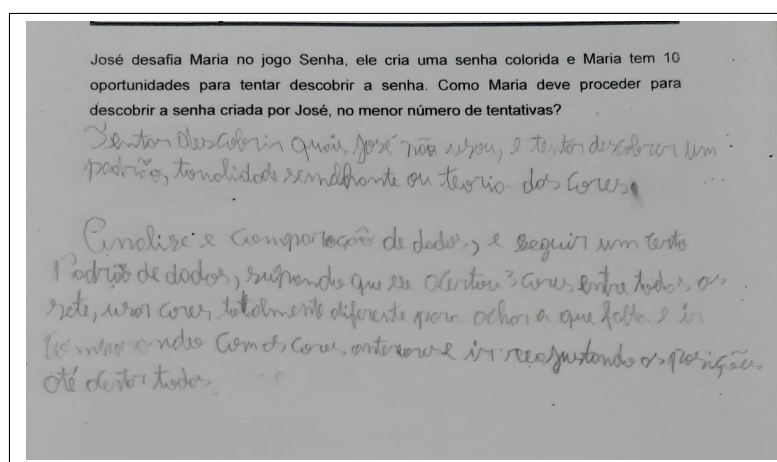 José desafia Maria no jogo Senha, ele cria uma senha colorida e Maria tem 10
oportunidades para tentar descobrir a senha. Como Maria deve proceder para
descobrir a senha criada por José, no menor número de tentativas?
Tentar descobrir quais José não usou, e tentar descobrir um
padrão, tonalidade semelhante ou teoria das cores.
Analise e comparação de dados, e seguir um certo
Padrão de dados, supondo que eu acertou 3 cores entre todos os
sete, usar cores totalmente diferente para achar a que falta e ir
com as cores anteriores e ir reajustando as posições
até acertar todos.